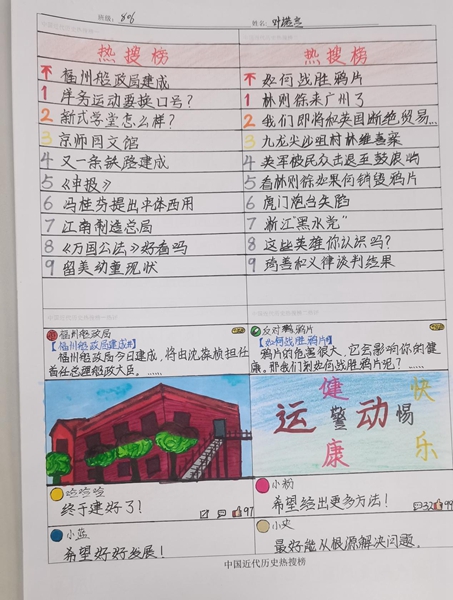 班级：806
姓名：
热搜榜
福州船政局建成
1 洋务运动要换口号？
2 新式学堂怎么样？
3 京师同文馆
4 又一条铁路建成
5 《申报》
6 冯桂芬提出中体西用
7 江南制造总局
8 《万国公法》好看吗
9 留美幼童现状
热搜榜
如何战胜鸦片
1 林则徐来广州了
2 我们即将和英国断绝贸易...
3 九龙尖沙咀村林维喜案
4 英军被民众击退至鼓浪屿
5 看林则徐如何销毁鸦片
6 虎门炮台失陷
7 浙江"黑水党"
8 这些英雄你认识吗？
9 琦善和义律谈判结果
福州船政局
【福州船政局建成#】
福州船政局今日建成，将由沈葆桢担任
首任总理船政大臣。……
哈哈哈
终于建好了！
97
小蓝
希望好好发展！
反对鸦片
【如何战胜鸦片#】
鸦片的危害很大，它会影响你的健
康。那我们到如何战胜鸦片呢？……
健 快
运 警 动 惕
康 乐
小粉
希望给出更多方法！
32 99
小史
最好能从根源解决问题.
中国近代历史热搜榜